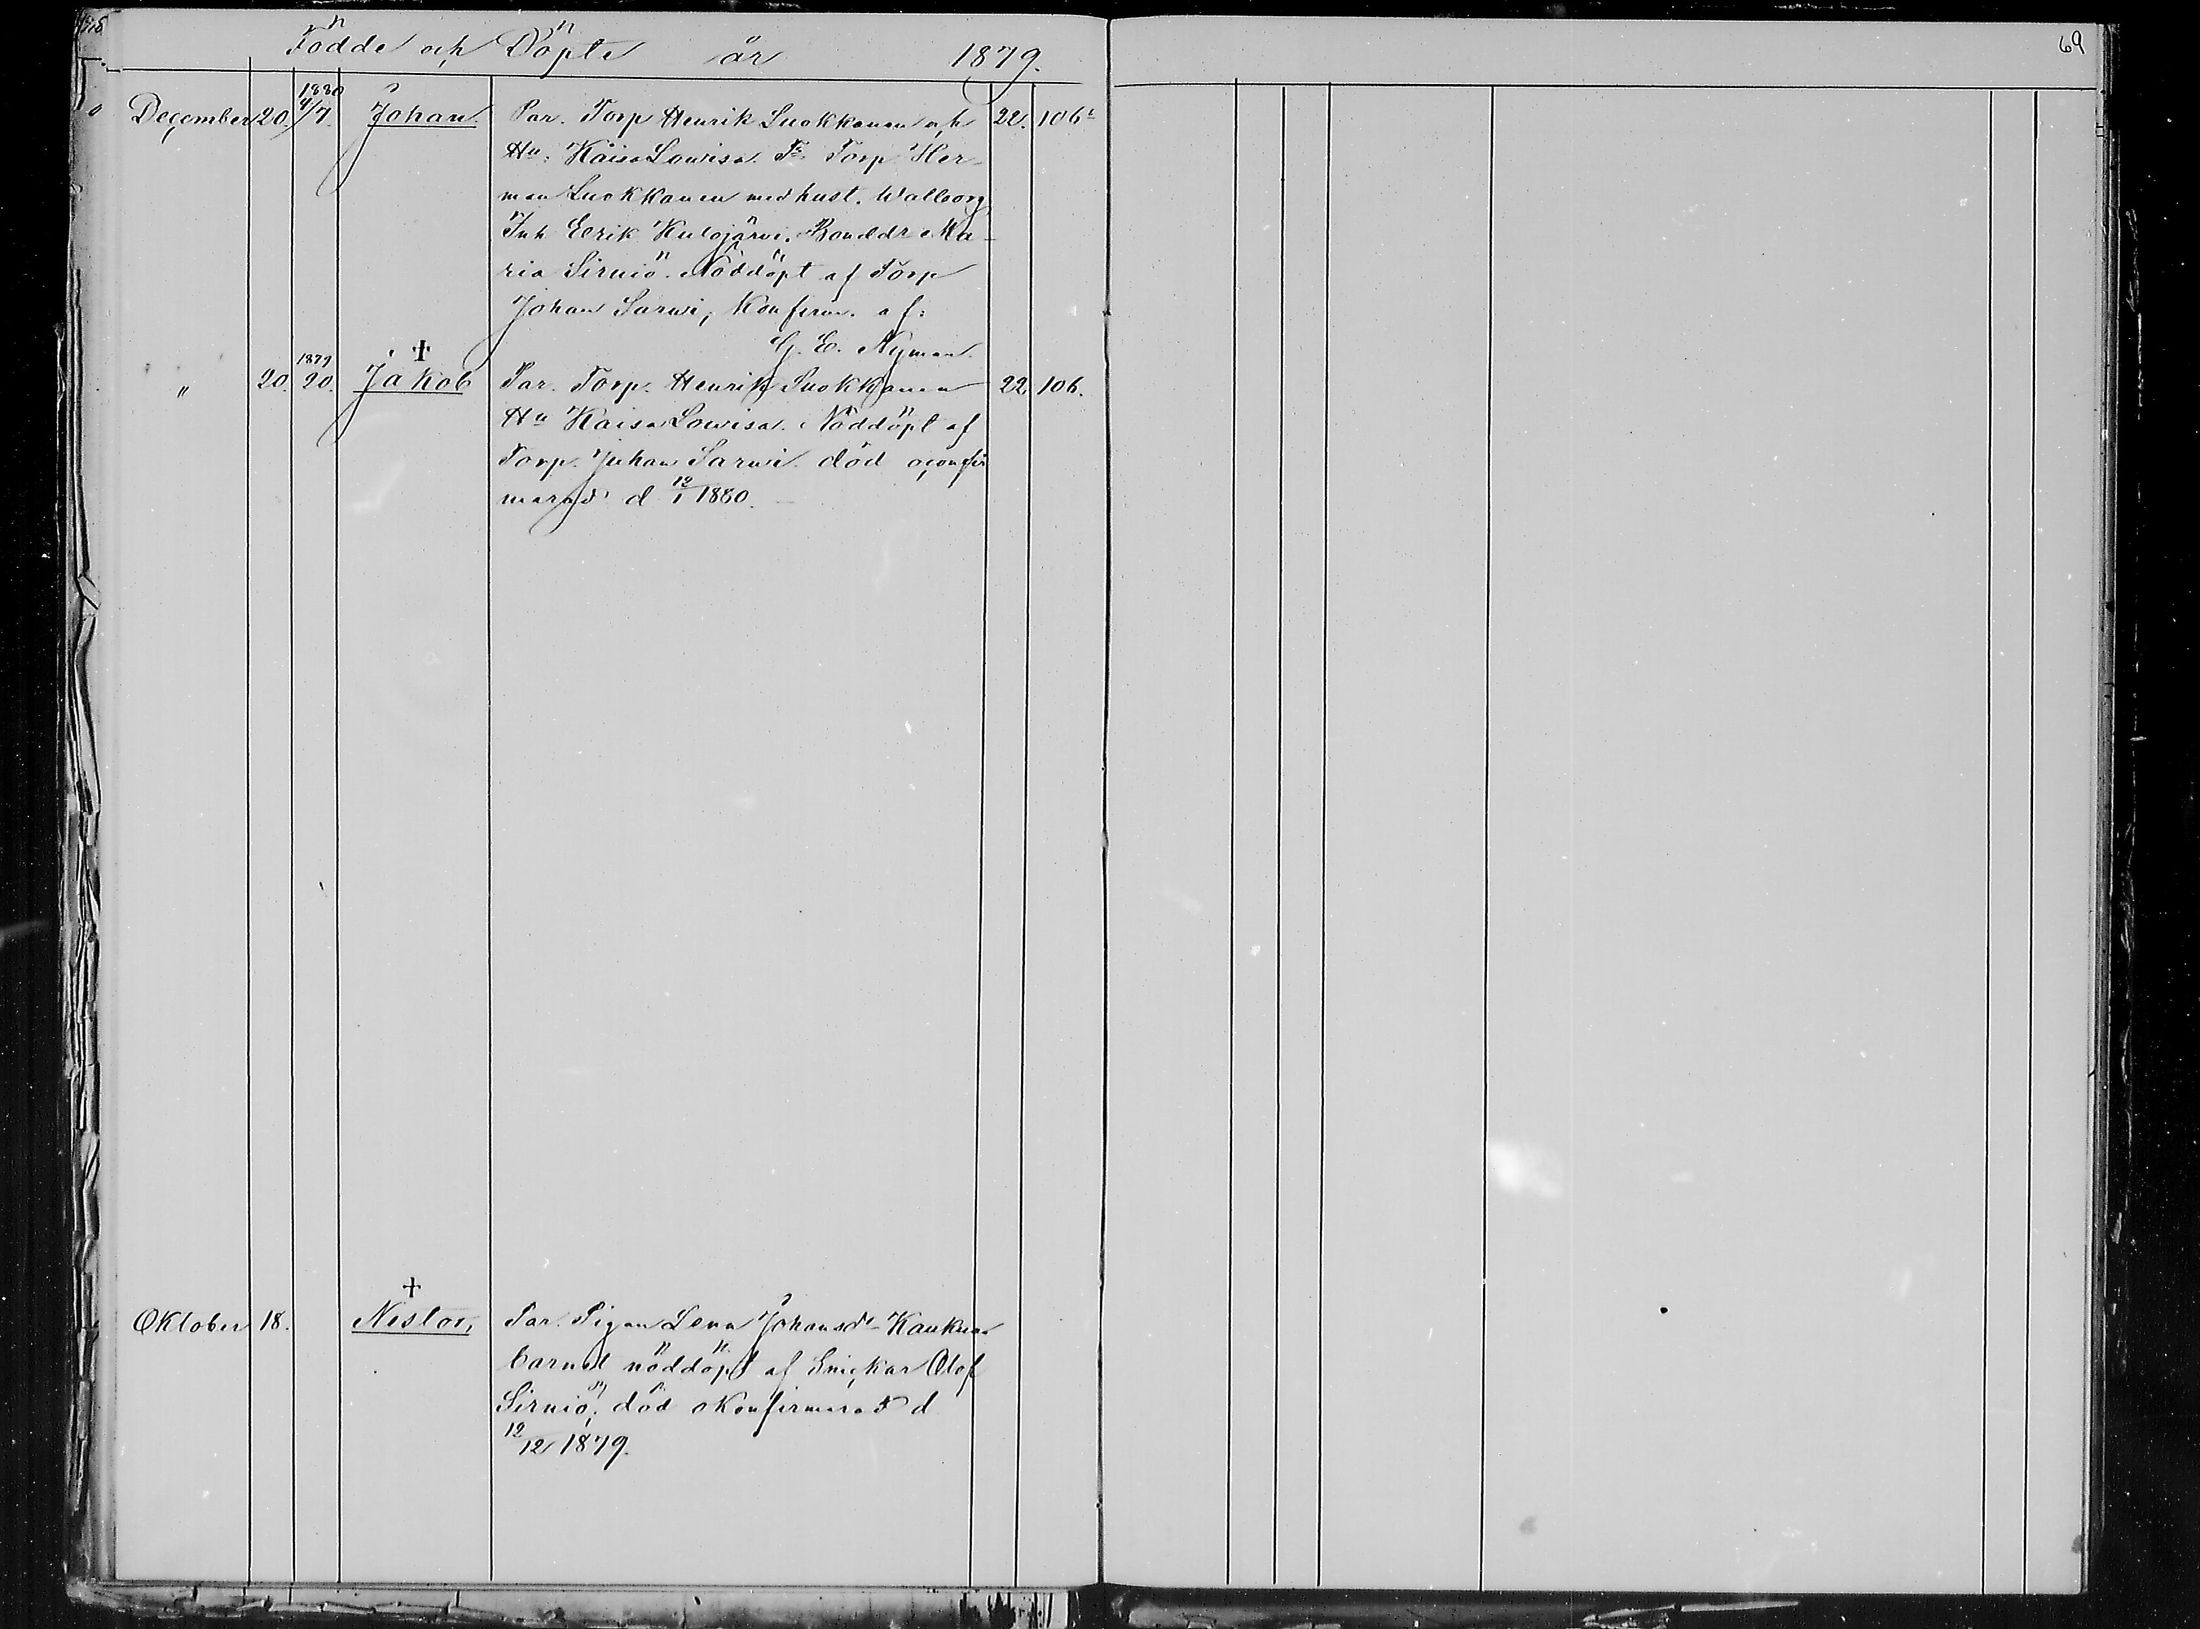 Födde och Döpte år 1879.
69
1880
December 20. 4/7. Johan. Par. Torp Henrik Suokkanen och 22. 106
Hu: Kaisa Lowisa. Torp Her-
man Luokkanen med hust. Walborg
Inh Eerik Kulojärvi. Bonddr Ma-
ria Sirniö. Nöddöpt af Torp
Johan Sarwi, Konfirm. af:
G. E. Nyman.
1879 †
" 20. 20. Jakob Par. Torp. Henrik Suokkanen 22. 106.
Hu Kaisa Lowisa. Nöddöpt af
Torp. Juhan Sarwi. död oconfir
merad d 12/1 1880.
†
Oktober 18. Nestor, Par. Pigan Lena Johansdr
barnet nöddöpt af Snickar Olof
Sirniö, död okonfirmerad d
12/12 1879.